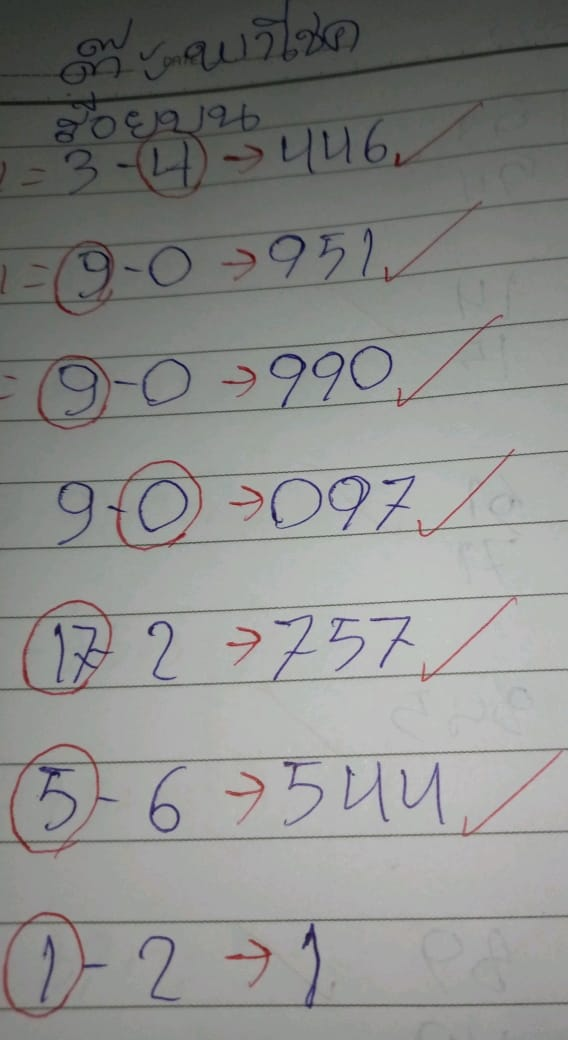 ตั๊ะ พาโชค
ร้อยบน
= 3-4 → 446 ✓
= 9-0 → 951 ✓
= 9-0 → 990 ✓
9-0 → 097 ✓
17-2 → 757 ✓
5-6 → 544 ✓
1-2 → 1